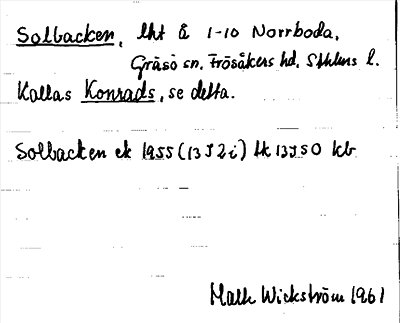 Solbacken, lht å 1-10 Norrboda,
Gräsö sn, Frösåkers hd, Sthlms l.
Kallas Konrads, se detta.
Solbacken ek 1955 (13J2i) lk 13J50 kb
Math Wickström 1961